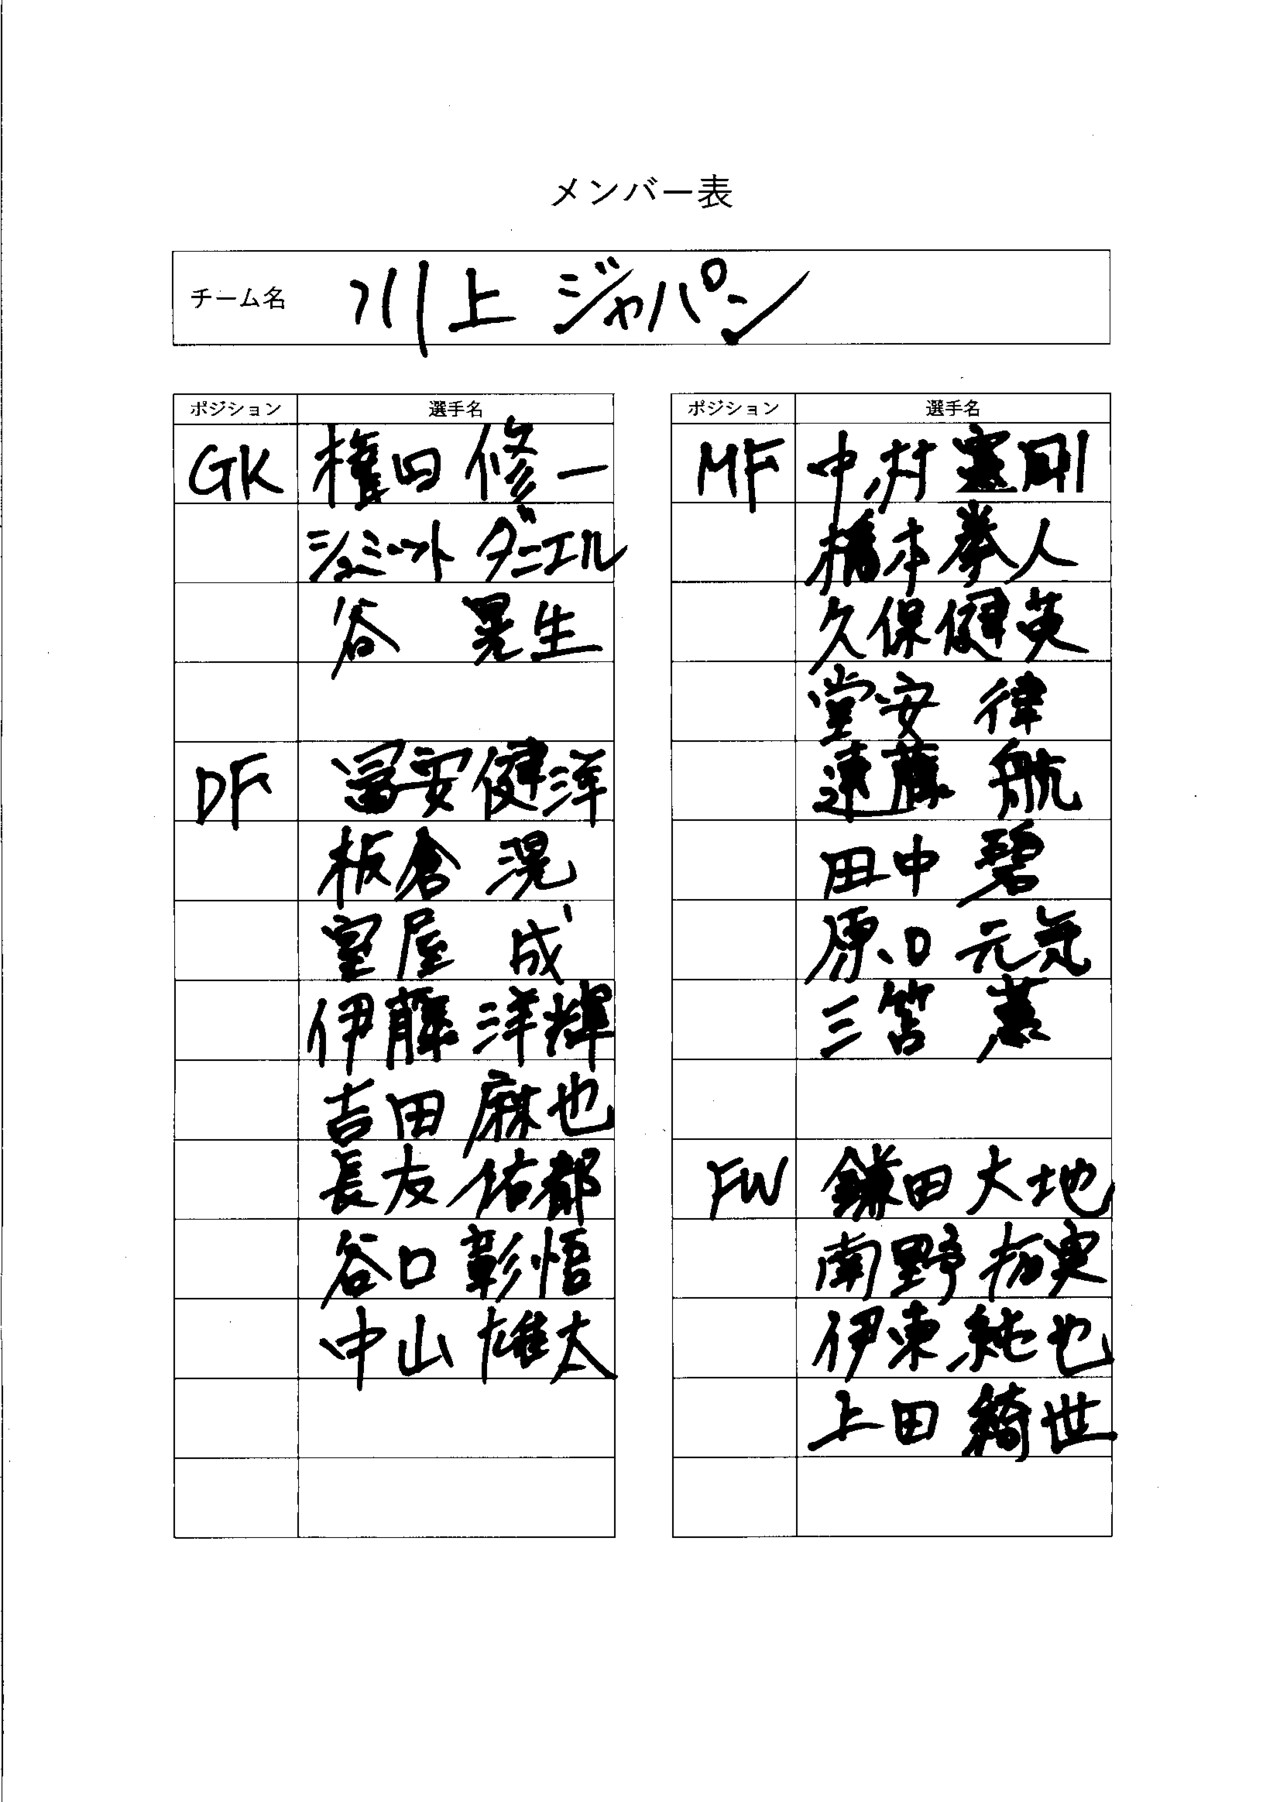 メンバー表
チーム名 川上ジャパン
ポジション 選手名
GK 権田修一
シュミット ダニエル
谷 晃生
DF 冨安健洋
板倉 滉
室屋 成
伊藤洋輝
吉田麻也
長友佑都
谷口彰悟
中山雄太
ポジション 選手名
MF 中村憲剛
橋本拳人
久保健英
堂安 律
遠藤 航
田中 碧
原口元気
三笘 薫
FW 鎌田大地
南野拓実
伊東純也
上田綺世